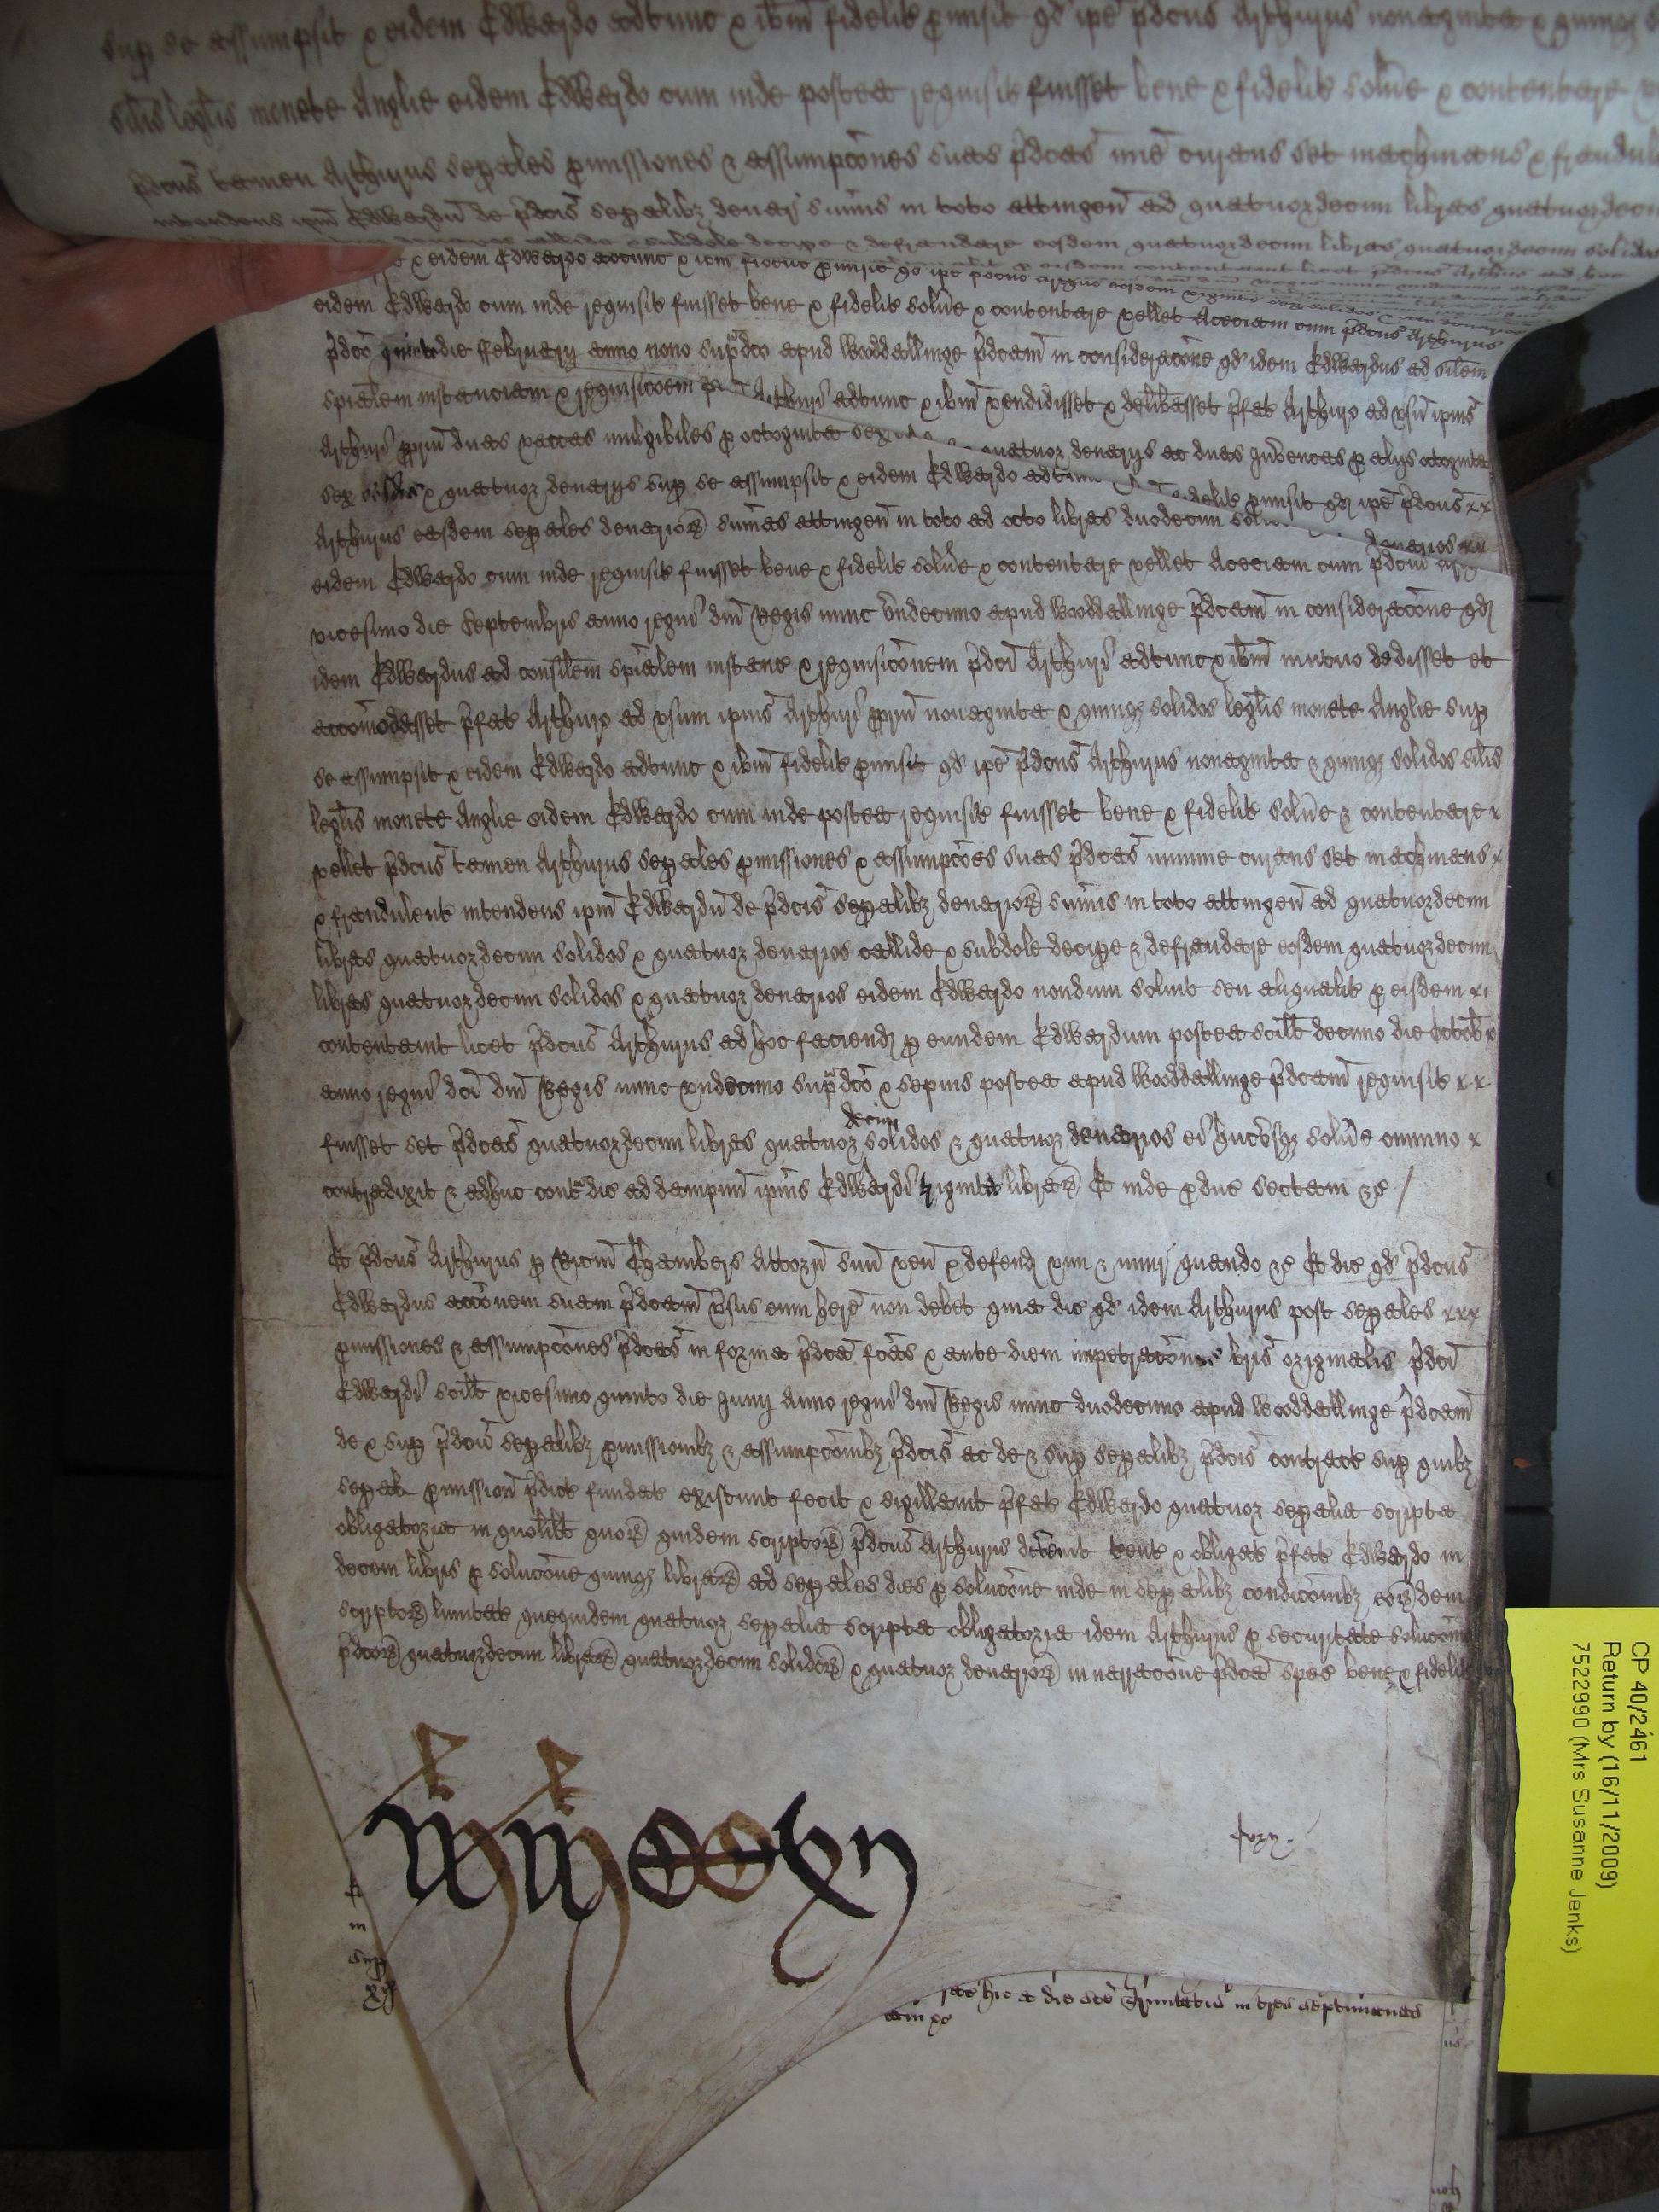 sup se assumpsit & eidem Edwardo adtunc & ib̄m fidelit p̱misit qd ip̄e p̄dcus Arthurus nonaginta & quinq
silis leg̃lis monete Anglie eidem Edwardo cum inde postea requisit fuisset bene & fidelit solv̄e & contentare
p̄dcus tamen Arthurus sep̱ales p̱missiones & assumpc̄ones suas p̄dcas mīe curans set machinans & fraudul
intendens ip̄m Edwardū de p̄dcis sep̱alibz denar sum̄is in toto attingen̄ ad quatuordecim libras quatuordecim
callide & subdole decip̱e & defraudare eosdem quatuordecim libras quatuordecim solidos
& eidem Edwardo adtunc & ib̄m fidelit p̱misit qd ip̄e p̄dcus Arthurus
eidem Edwardo cum inde requisit fuisset bene & fidelit solv̄e & contentare vellet Aceciam cum p̄dcus Arthurus
p̄dco quinto die Februarij anno nono sup̄dco apud Wooddallinge p̄dcam in considerac̄one qd idem Edwardus ad sil̄em
sp̄ialem instanciam & requisic̄oem Arthuri adtunc & ib̄m vendidisset & delib̄asset p̄fat Arthuro ad usū ip̄ius
Arthuri p̱priū duas vaccas mulgibiles p̱ octoginta sex quatuor denarijs ac duas Juvencas p̱ alijs octoginta
sex solid & quatuor denarijs sup se assumpsit & eidem Edwardo adtunc fidelit p̱misit qd ip̄e p̄dcus xx
Arthurus easdem sep̱ales denarior̄ sum̄as attingen̄ in toto ad octo libras duodecim denarios xx
eidem Edwardo cum inde requisit fuisset bene & fidelit solv̄e & contentare vellet Aceciam cum p̄dcus
vicesimo die Septembris anno regni dn̄i Regis nunc undecimo apud Wooddallinge p̄dcam in considerac̄one qd
idem Edwardus ad consil̄em sp̄ialem instanc & requisic̄onem p̄dci Arthuri adtunc & ib̄m mutuo dedisset et
accom̄odasset p̄fat Arthuro ad usum ip̄ius Arthuri p̱priū nonaginta & quinqz solidos leg̃lis monete Anglie sup
se assumpsit & eidem Edwardo adtunc & ib̄m fidelit p̱misit qd ip̄e p̄dcus Arthurus nonaginta & quinqz solidos sil̄is
leg̃lis monete Anglie eidem Edwardo cum inde postea requisit fuisset bene & fidelit solv̄e & contentare x
vellet p̄dcus tamen Arthurus sep̱ales p̱missiones & assumpc̄oes suas p̄dcas minime curans set machinans x
& fraudulent intendens ip̄m Edwardū de p̄dcis sep̱alibz denarior̄ sum̄is in toto attingen̄ ad quatuordecim
libras quatuordecim solidos & quatuor denarios callide & subdole decip̱e & defraudare eosdem quatuordecim
libras quatuordecim solidos & quatuor denarios eidem Edwardo nondum solvit seu aliqualit p̱ eisdem x
contentavit licet p̄dcus Arthurus ad hoc faciend p̱ eundem Edwardum postea scilt decimo die Octobr x
anno regni dci dn̄i Regis nunc undecimo sup̄dco & sepius postea apud Wooddallinge p̄dcam requisit xx
fuisset set p̄dcas quatuordecim libras quatuor decim solidos & quatuor denarios ei hucusqz solv̄e omnino x
contradixit & adhuc contᵃdic ad dampnū ip̄ius Edwardi triginta librar̄ Et inde p̱duc sectam &c /
Et p̄dcus Arthurus p̱ Ric̄um Chambers Attorn̄ suū ven̄ & defend vim & iniur quando &c Et dic qd p̄dcus
Edwardus acc̄onem suam p̄dcam v̄sus eum her̄e non debet quia dic qd idem Arthurus post sep̱ales xxx
p̱missiones & assumpc̄ones p̄dcas in forma p̄dca fc̄as & ante diem impetrac̄onis bris originalis p̄dci
Edwardi scilt vicesimo quinto die Junij Anno regni dn̄i Regis nunc duodecimo apud Wooddallinge p̄dcam
de & sup p̄dcis sep̱alibz p̱missionibz & assumpc̄onibz p̄dcis ac de & sup sep̱alibz p̄dcis contract sup quibz
sep̱al p̱mission̄ p̄dict fundat existunt fecit & sigillavit p̄fat Edwardo quatuor sep̱alia scripta
obligatoria in quolibt quor̄ quidem scriptor̄ p̄dcus Arthurus devenit tent & obligat p̄fat Edwardo in
decem libris p̱ soluc̄one quinqz librar̄ ad sep̱ales dies p̱ soluc̄one inde in sep̱alibz condic̄onibz eor̄dem
scriptor̄ limitat quequidem quatuor sep̱alia scripta obligatoria idem Arthurus p̱ securitate soluc̄ois
p̄dcar̄ quatuordecim librar̄ quatuordecim solidor̄ & quatuor denarior̄ in narrac̄one p̄dca spec bene & fidelit
hic a die sce Trinitatis in tres septimanas
CP 40/2461
Return by (16/11/2009)
7522990 (Mrs Susanne Jenks)